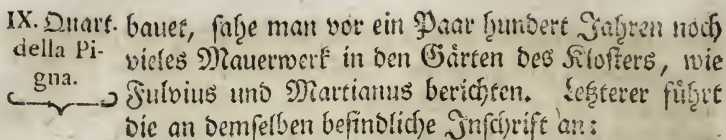 IX. Quart.
della Pi-
gna.
bauet, sahe man vor ein Paar hundert Jahren noch
vieles Mauerwerk in den Gärten des Klosters, wie
Fulvius und Martianus berichten. Letzterer führt
die an demselben befindliche Inschrift an: